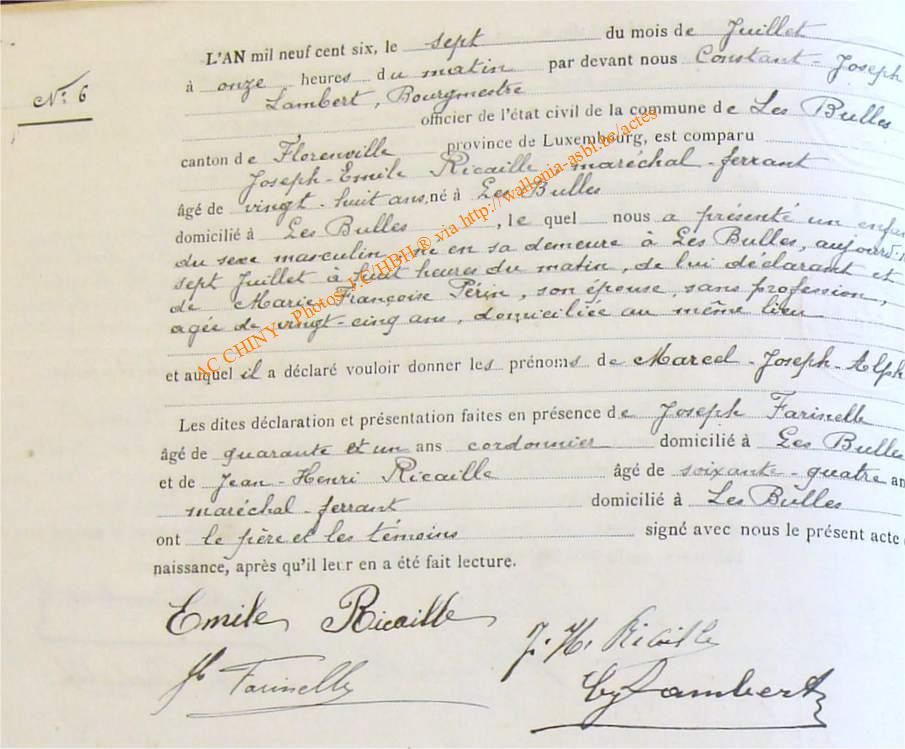 N° 6
L'AN mil neuf cent six, le sept du mois de Juillet
à onze heures du matin par devant nous Constant-Joseph
Lambert, Bourgmestre
officier de l'état civil de la commune de Les Bulles
canton de Florenville province de Luxembourg, est comparu
Joseph-Emile Ricaille maréchal-ferrant
âgé de vingt-huit ans, né à Les Bulles
domicilié à Les Bulles, le quel nous a présenté un enfan
du sexe masculin, né en sa demeure à Les Bulles, aujourd'h
sept Juillet à huit heures du matin, de lui déclarant et
de Marie-Françoise Périn, son épouse, sans profession,
agée de vingt-cinq ans, domiciliée au même lieu
et auquel il a déclaré vouloir donner les prénoms de Marcel-Joseph-Alph
Les dites déclaration et présentation faites en présence de Joseph Farinelle
âgé de quarante et un ans cordonnier domicilié à Les Bulles
et de Jean-Henri Ricaille âgé de soixante-quatre an
maréchal-ferrant domicilié à Les Bulles
ont le père et les témoins signé avec nous le présent acte d
naissance, après qu'il leur en a été fait lecture.
Emile Ricaille
J. H. Ricaille
Farinelle
Lambert
AC CHINY - Photos J.C/HBH® via http://wallonia-asbl.be/actes